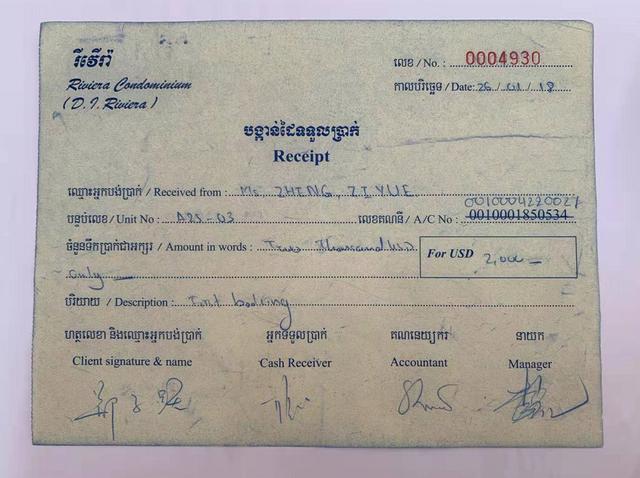 រីវើរ៉ា
Riviera Condominium
(D.I. Riviera)
លេខ / No. : 0004930
កាលបរិច្ឆេទ / Date: 26 / 01 / 18
បង្កាន់ដៃទទួលប្រាក់
Receipt
ឈ្មោះអ្នកបង់ប្រាក់ / Received from : Mr. ZHENG, ZI YUE
បន្ទប់លេខ / Unit No : A25-03
លេខគណនី / A/C No : 0010001850534
ចំនួនទឹកប្រាក់ជាអក្សរ / Amount in words : Two Thousand USD
only
For USD 2,000
បរិយាយ / Description : First booking
ហត្ថលេខា និងឈ្មោះអ្នកបង់ប្រាក់ អ្នកទទួលប្រាក់ គណនេយ្យករ នាយក
Client signature & name Cash Receiver Accountant Manager